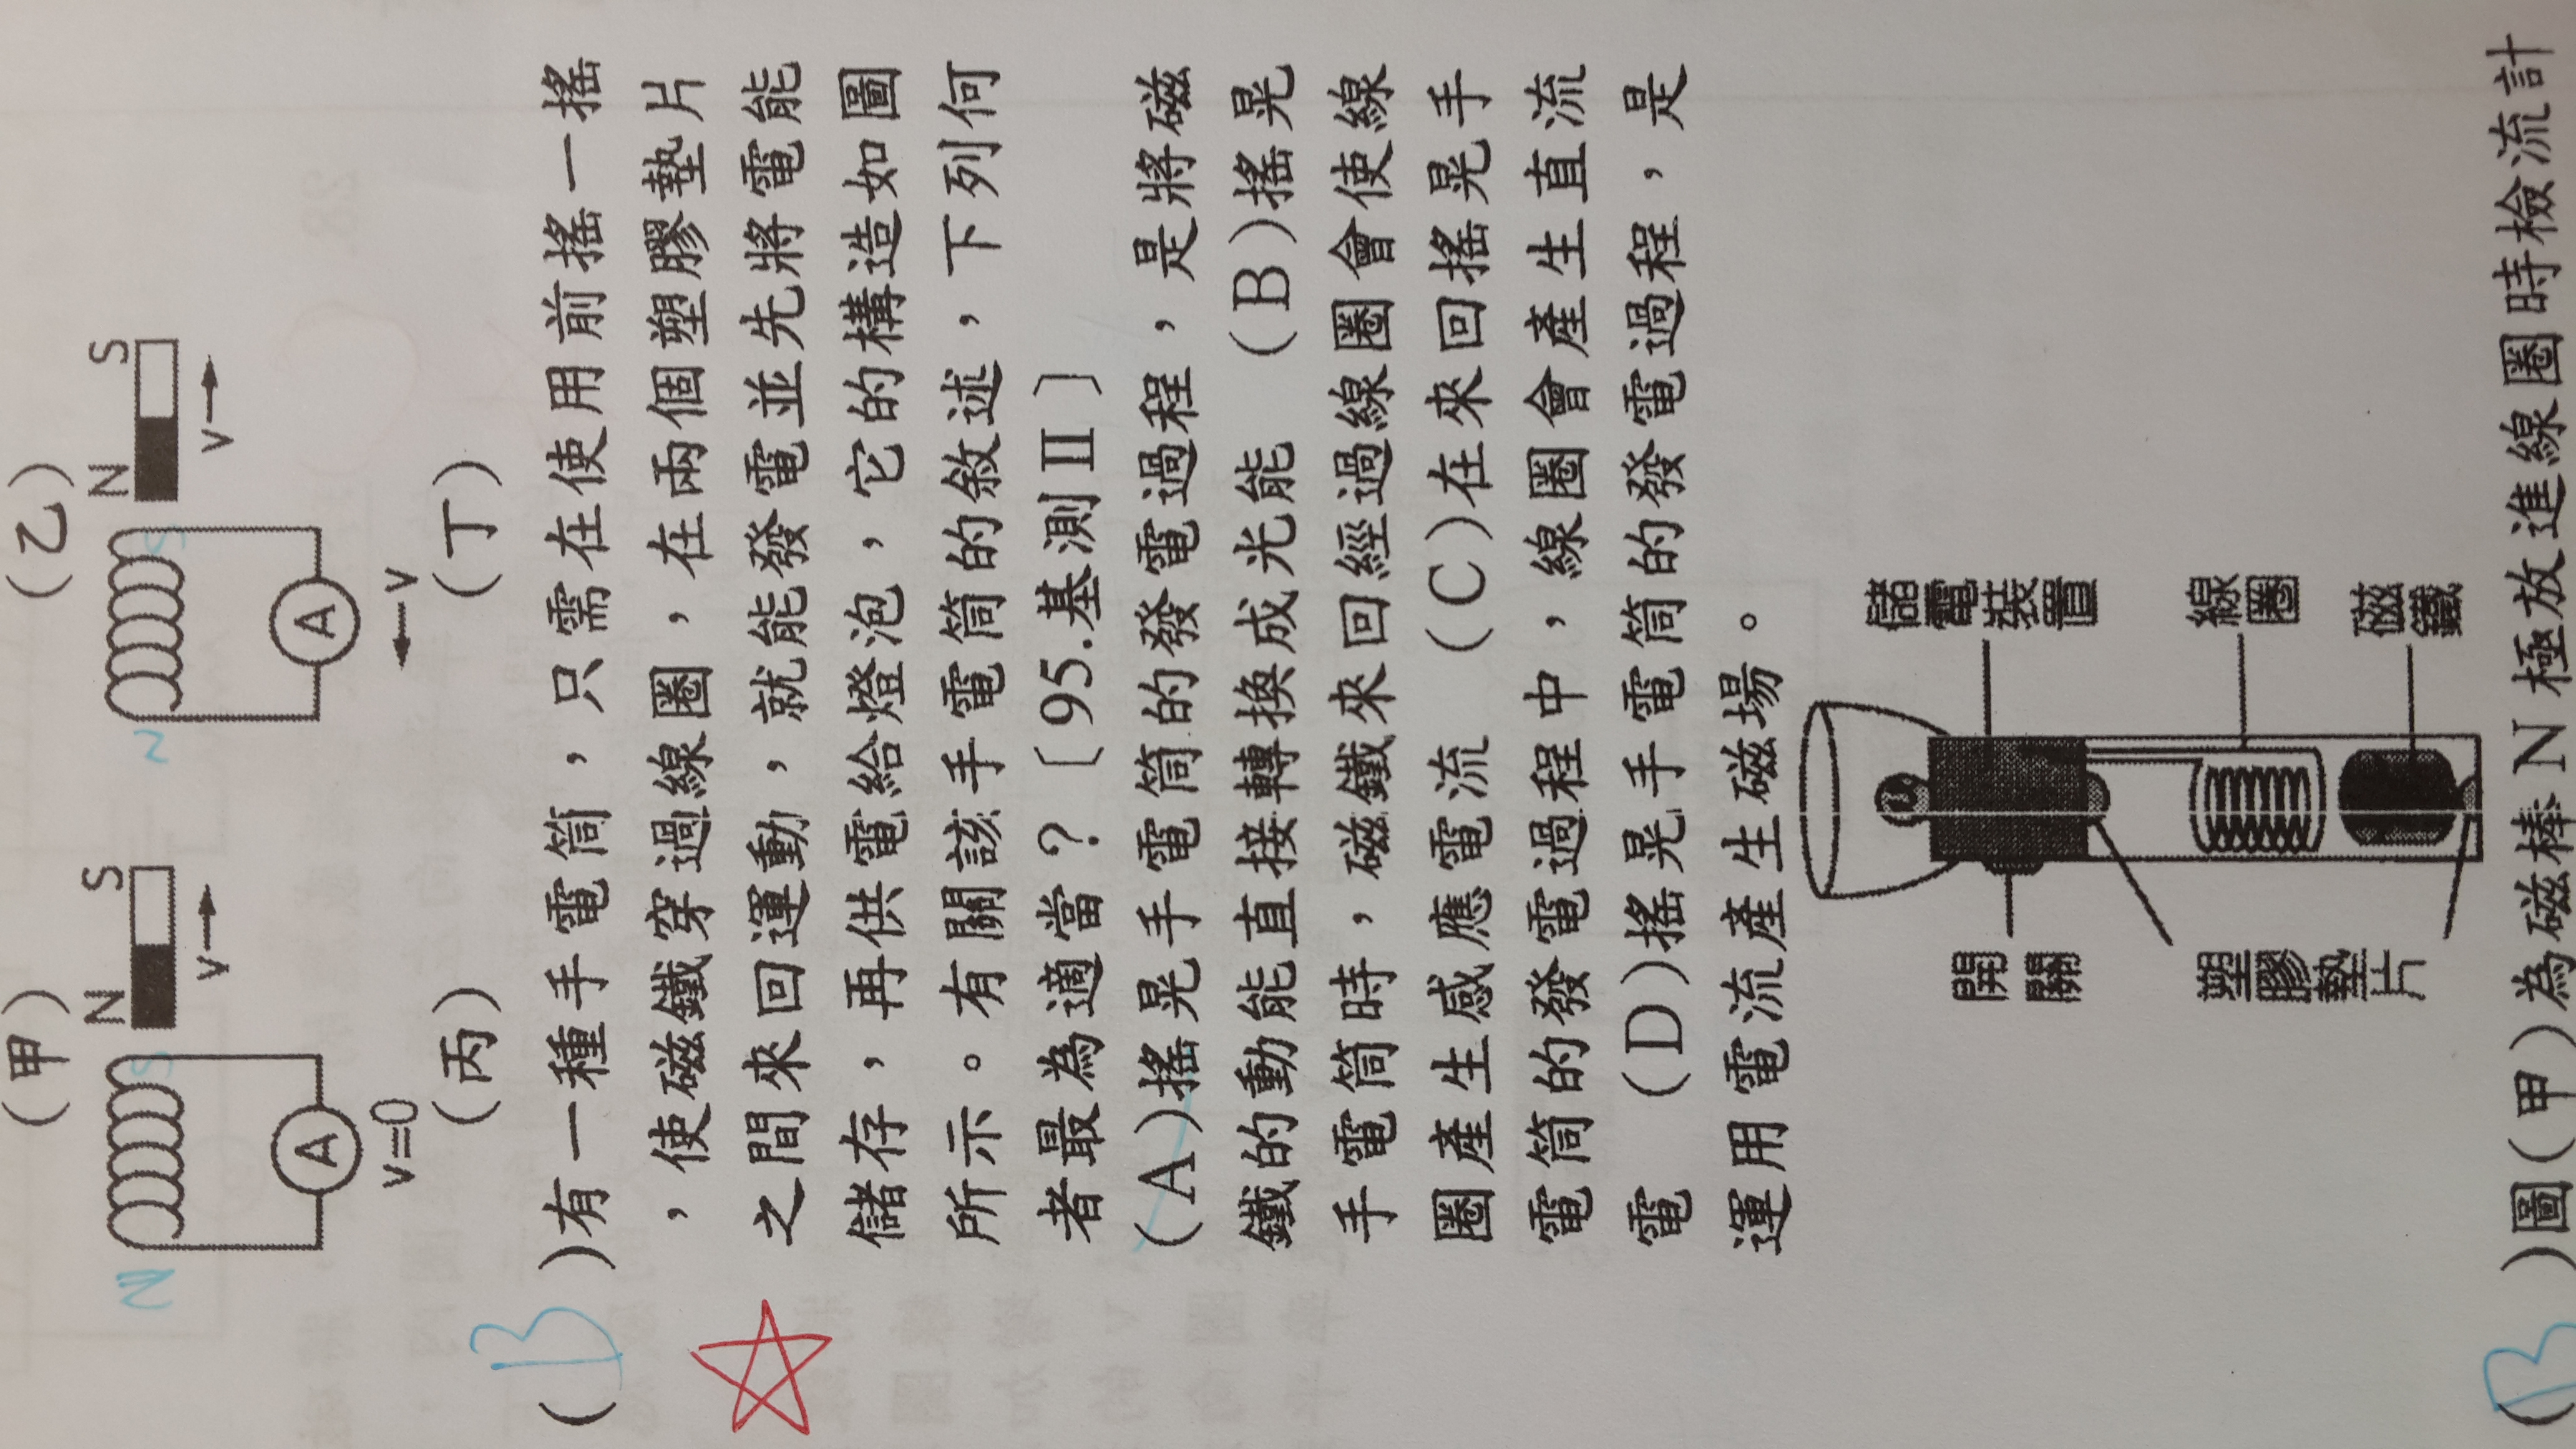 (甲)
(乙)
N S
v→
A
v=0
N S
N S
v→
A
←v
N S
(丙)
(丁)
(B)有一種手電筒，只需在使用前搖一搖
，使磁鐵穿過線圈，在兩個塑膠墊片
之間來回運動，就能發電並先將電能
儲存，再供電給燈泡，它的構造如圖
所示。有關該手電筒的敘述，下列何
者最為適當？〔95.基測Ⅱ〕
(A)搖晃手電筒的發電過程，是將磁
鐵的動能直接轉換成光能 (B)搖晃
手電筒時，磁鐵來回經過線圈會使線
圈產生感應電流 (C)在來回搖晃手
電筒的發電過程中，線圈會產生直流
電 (D)搖晃手電筒的發電過程，是
運用電流產生磁場。
開關
儲電裝置
塑膠墊片
線圈
磁鐵
(B)圖(甲)為磁棒N極放進線圈時檢流計